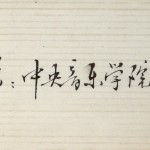 ：中央音乐学院